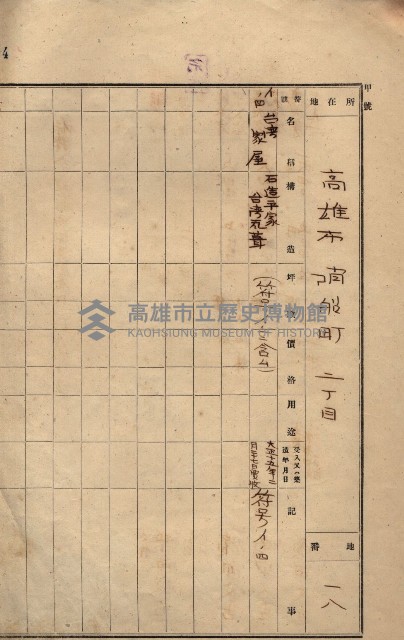 甲號
所在地 高雄市 町 二丁目 地番 一八
番號 名稱 構造 坪數 價格 用途 受入又ハ建造年月日 記事
イ、四 台湾家屋 石造平家 台湾瓦葺 大正十五年二月二十七日買收 符号イ、四
高雄市立歷史博物館
KAOHSIUNG MUSEUM OF HISTORY
4